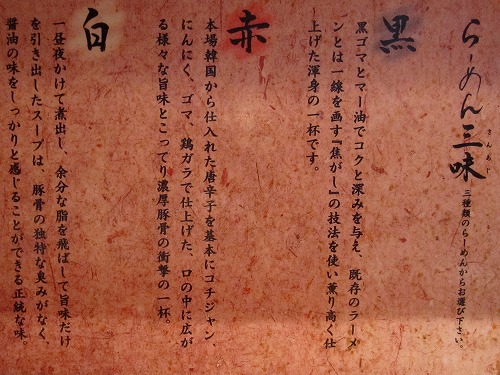 らーめん三味
さんあじ
三種類のらーめんからお選び下さい。
黒
黒ゴマとマー油でコクと深みを与え、既存のラーメ
ンとは一線を画す『焦がし』の技法を使い薫り高く仕
上げた渾身の一杯です。
赤
本場韓国から仕入れた唐辛子を基本にコチジャン、
にんにく、ゴマ、鶏ガラで仕上げた、口の中に広が
る様々な旨味とこってり濃厚豚骨の衝撃の一杯。
白
一昼夜かけて煮出し、余分な脂を飛ばして旨味だけ
を引き出したスープは、豚骨の独特な臭みがなく、
醤油の味をしっかりと感じることができる正統な味。